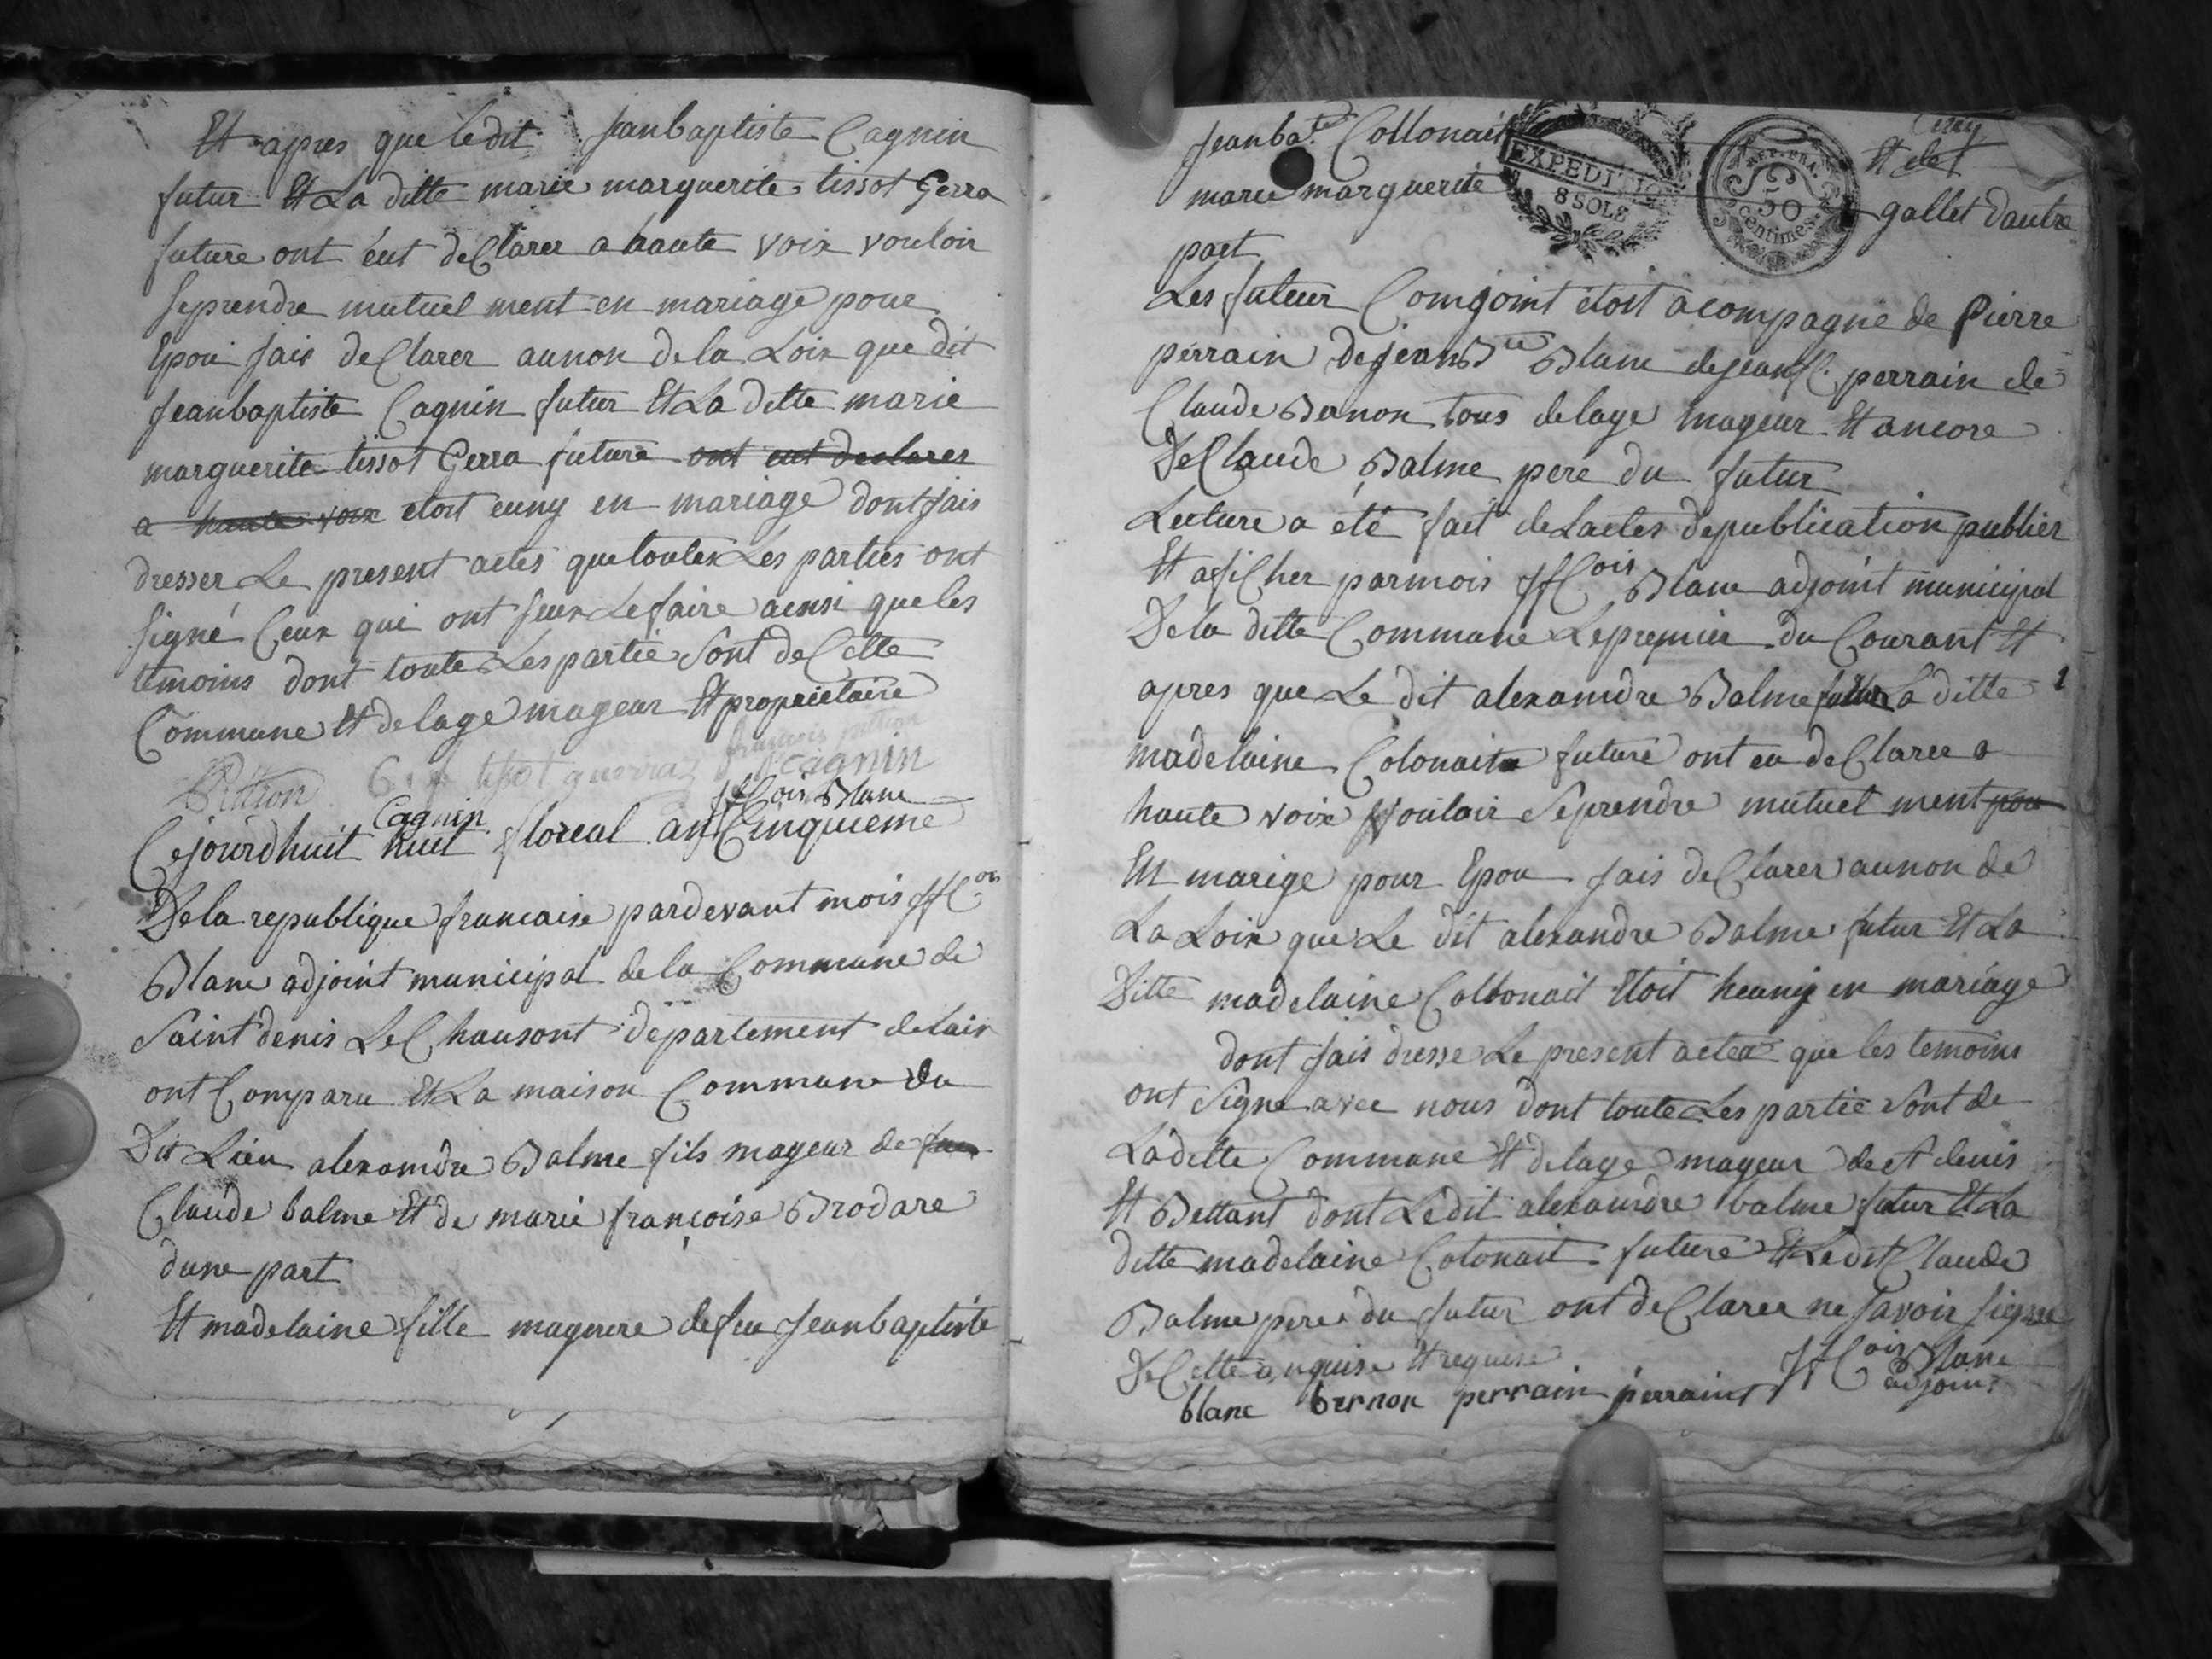 Et apres que ledit Jeanbaptiste Cagnin
futur Et La ditte marie marguerite tissot Gerra
future ont eut deClarer a haute voix vouloir
seprendre mutuel ment en mariage pour
Epou jais deClarer aunon de la Loix que dit
Jeanbaptiste Cagnin futur Et La ditte marie
marguerite tissot Gerra future ont eut declarer
a haute voix etoit euny en mariage dont jais
dresser Le present actes que toutes Les parties ont
signé Ceux qui ont seux Le faire ainsi que les
temoins dont toute Les partie sont de Cette
Commune Et delage mageur Et proprietaire
françois pittion
Pittion tissot guerraz j cagnin
Cagnin ffCois Blanc
Cejourdhuit huit floreal an Cinquieme
De la republique francaise pardevant mois ffCois
Blanc adjoint municipal de la Commune de
Saint denis Le Chausont departement delain
ont Comparu Et La maison Commune du
Dit Lieu alexamdre Balme fils mageur de feu
Claude balme Et de marie françoise Brodare
dune part
Et madelaine fille mageure defeu Jeanbaptiste
Jeanbate Collonait
EXPEDITION
8 SOLS
REP. FRA.
50
centimes
Et de
marie marguerite gallet dautre
part
Les futeur Comjoint etoit acompagné de Pierre
perrain de jean Bte Blanc de jean C. perrain de
Claude Bernon tous delage mageur Et ancore
De Claude Balme pere du futur
Lecture a été fait de Lactes depublication publier
Et afiCher parmois ffCois Blanc adjoint municipal
De la ditte Commune Lepremier du Courant Et
apres que Le dit alexamdre Balme futur La ditte
madelaine Colonait future ont eu deClarer a
haute voix vouloir seprendre mutuel ment pou
En marige pour Epou jais deClarer aunon de
La Loix que Le dit alexandre Balme futur Et La
Ditte madelaine Collonait Etoit heuny en mariage
dont jais dresse Le present actes que les temoins
ont signe avec nous dont toute Les partie sont de
La ditte Commune Et delage mageur de st denis
Et Bettant dont Ledit alexamdre balme futur Et La
ditte madelaine Colonait future Et Ledit Claude
Balme pere du futur ont deClarer ne savoir signer
De Cette anquise Et requise
ffCois Blanc
adjoint
blanc bernon perrain perraint